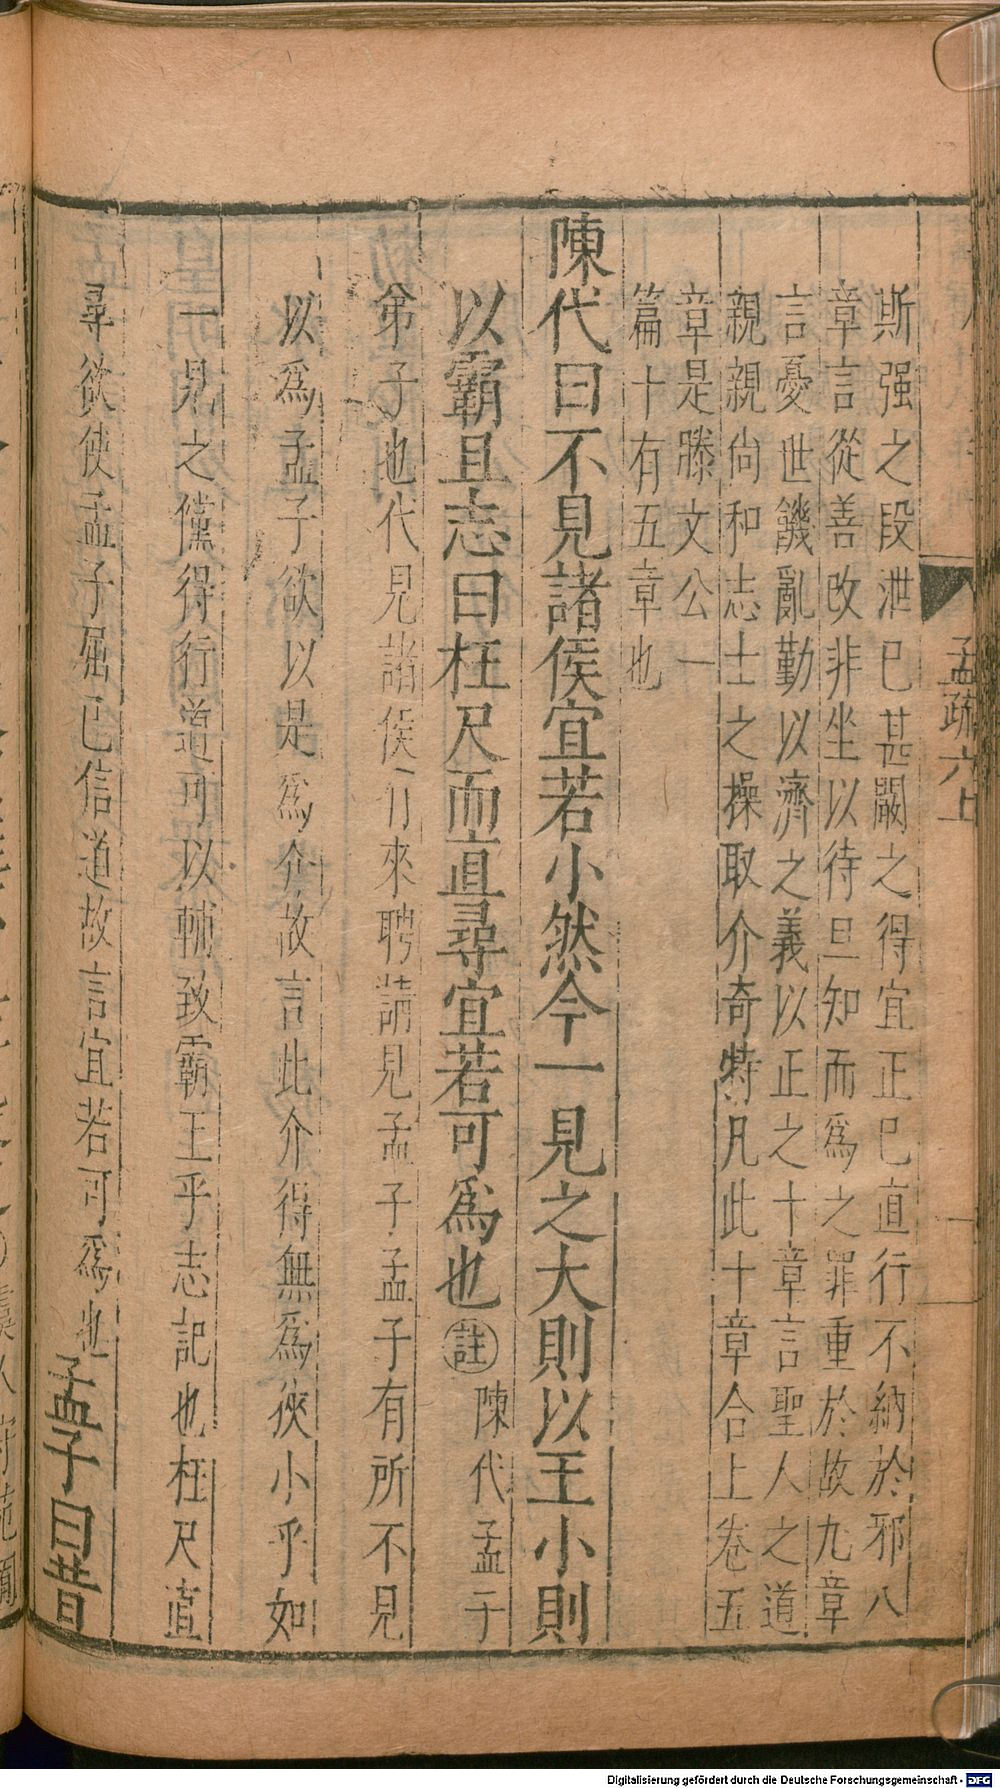 孟疏六上
斯强之段泄已甚嚴之得宜正已直行不納於邪八
章言從善改非坐以待旦知而爲之罪重於故九章
言憂世饑亂勤以濟之義以正之十章言聖人之道
親親尚和志士之操取介奇特凡此十章合上卷五
章是滕文公一
篇十有五章也
陳代曰不見諸侯宜若小然今一見之大則以王小則
以霸且志曰枉尺而直尋宜若可爲也註陳代孟子
弟子也代見諸侯有來聘請見孟子孟子有所不見
以爲孟子欲以是爲介故言此介得無爲狹小乎如
一見之儻得行道可以輔致霸王乎志記也枉尺直
尋欲使孟子屈已信道故言宜若可爲也孟子曰昔
Digitalisierung gefördert durch die Deutsche Forschungsgemeinschaft - DFG